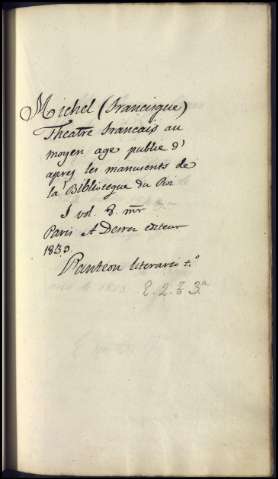 Michel (Francisque)
Theatre francais au
moyen age publie d'
apres les manuscrits de
la Bibliotegue du Roi
I vol. 8. mr
Paris A Desrez editeur
1839
Panteon literario t.º
E. 2. E 3.ª